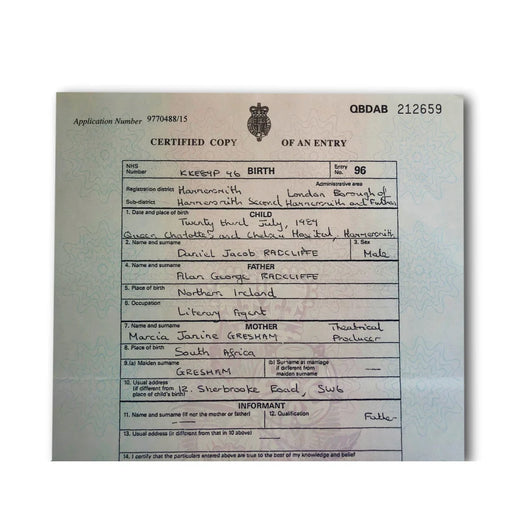 QBDAB 212659
Application Number 9770488/15
CERTIFIED COPY OF AN ENTRY
NHS Number KKEGYP 46 BIRTH Entry No. 96
Administrative area
Registration district Hammersmith London Borough of
Sub-district Hammersmith Second Hammersmith and Fulham
1. Date and place of birth CHILD
Twenty third July, 1989
Queen Charlotte's and Chelsea Hospital, Hammersmith
2. Name and surname 3. Sex
Daniel Jacob RADCLIFFE Male
4. Name and surname FATHER
Alan George RADCLIFFE
5. Place of birth
Northern Ireland
6. Occupation
Literary Agent
7. Name and surname MOTHER Theatrical
Marcia Janine GRESHAM Producer
8. Place of birth
South Africa
9.(a) Maiden surname (b) Surname at marriage
if different from
GRESHAM maiden surname
10. Usual address
(if different from 12. Sherbrooke Road, SW6
place of child's birth)
INFORMANT
11. Name and surname (if not the mother or father) 12. Qualification
Father
13. Usual address (if different from that in 10 above)
14. I certify that the particulars entered above are true to the best of my knowledge and belief